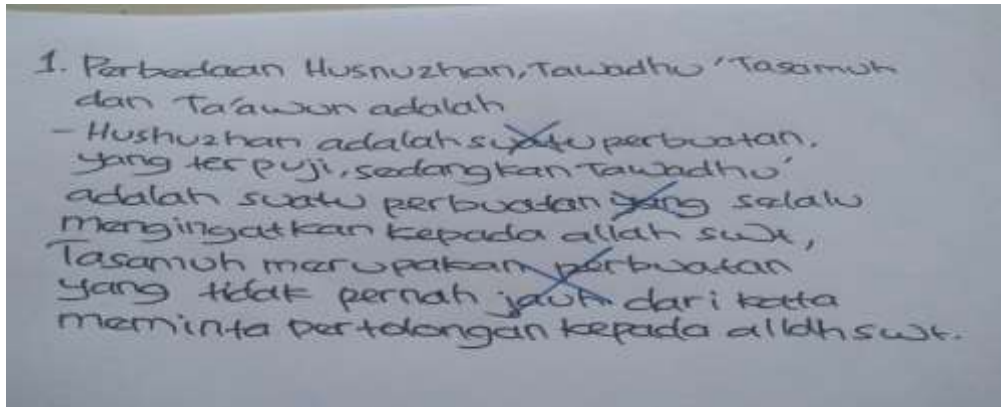 1. Perbedaan Husnuzhan, Tawadhu' Tasamuh
dan Ta'awun adalah
- Hushuzhan adalah suatu perbuatan.
yang terpuji, sedangkan Tawadhu'
adalah suatu perbuatan yang selalu
mengingatkan kepada allah swt,
Tasamuh merupakan perbuatan
yang tidak pernah jauh dari kata
meminta pertolongan kepada alldh swt.